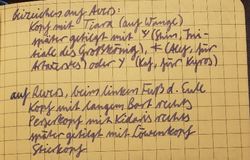 Beizeichen auf Avers:
Kopf mit Tiara (auf Wange)
später getilgt mit
tiale des Großkönigs), * (Kof. für
Artaxerxes) oder Y (Kof. für Kyros)
auf Revers, beim linken Fuß d. Eule
Kopf mit langem Bart rechts
Perserkopf mit Kidaris rechts
später getilgt mit Löwenkopf
Stierkopf